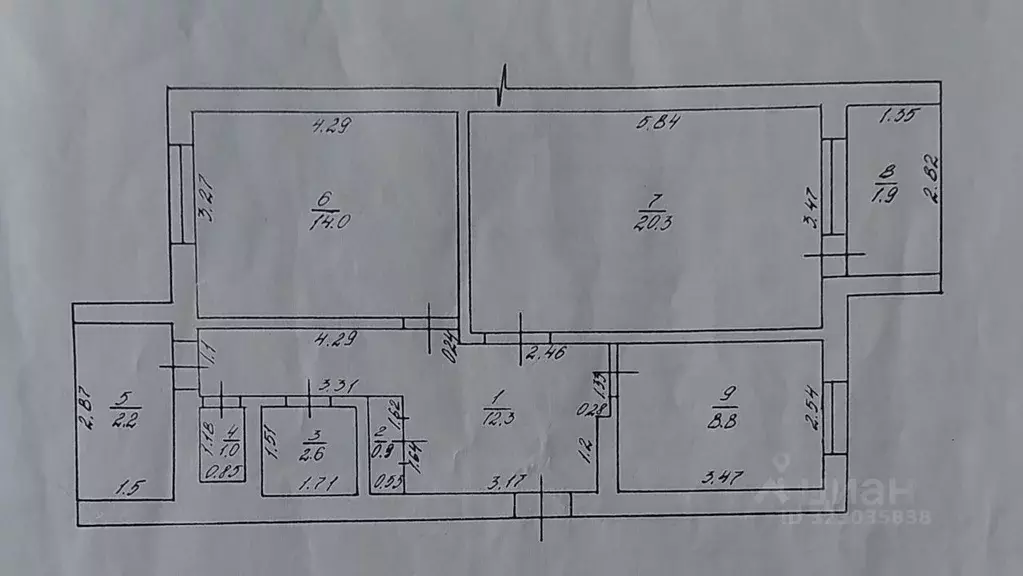 4.29
3.27
6
14.0
5.84
7
20.3
3.47
1.35
8
1.9
2.82
0.24
4.29
1.1
3.31
2.46
2.87
5
2.2
1.5
1.18
4
1.0
0.85
1.51
3
2.6
1.71
2
0.9
1.62
1.64
0.55
1
12.3
3.17
1.33
0.28
1.2
9
8.8
2.54
3.47
циан
ID 323035838